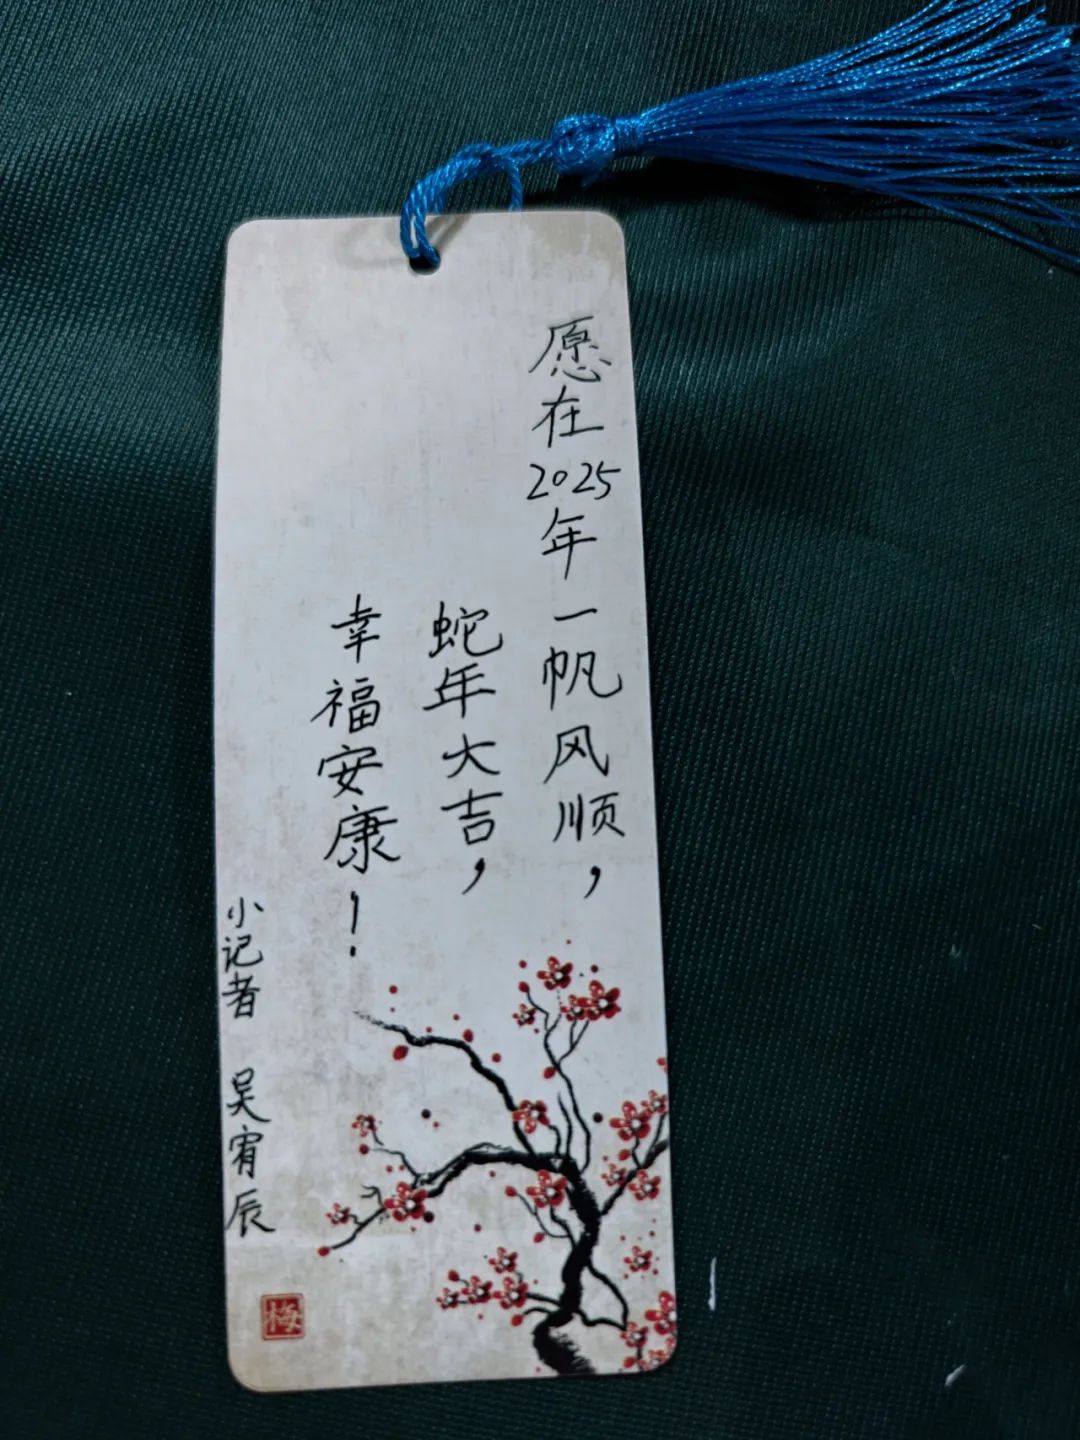 愿在2025年一帆风顺，
蛇年大吉，
幸福安康！
小记者 吴宥辰
梅